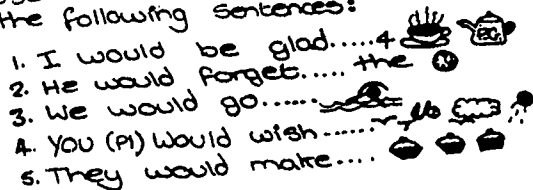 the following sentences:
1. I would be glad.....4
2. He would forget..... the
3. We would go......
4. You (Pl) would wish......
5. They would make....